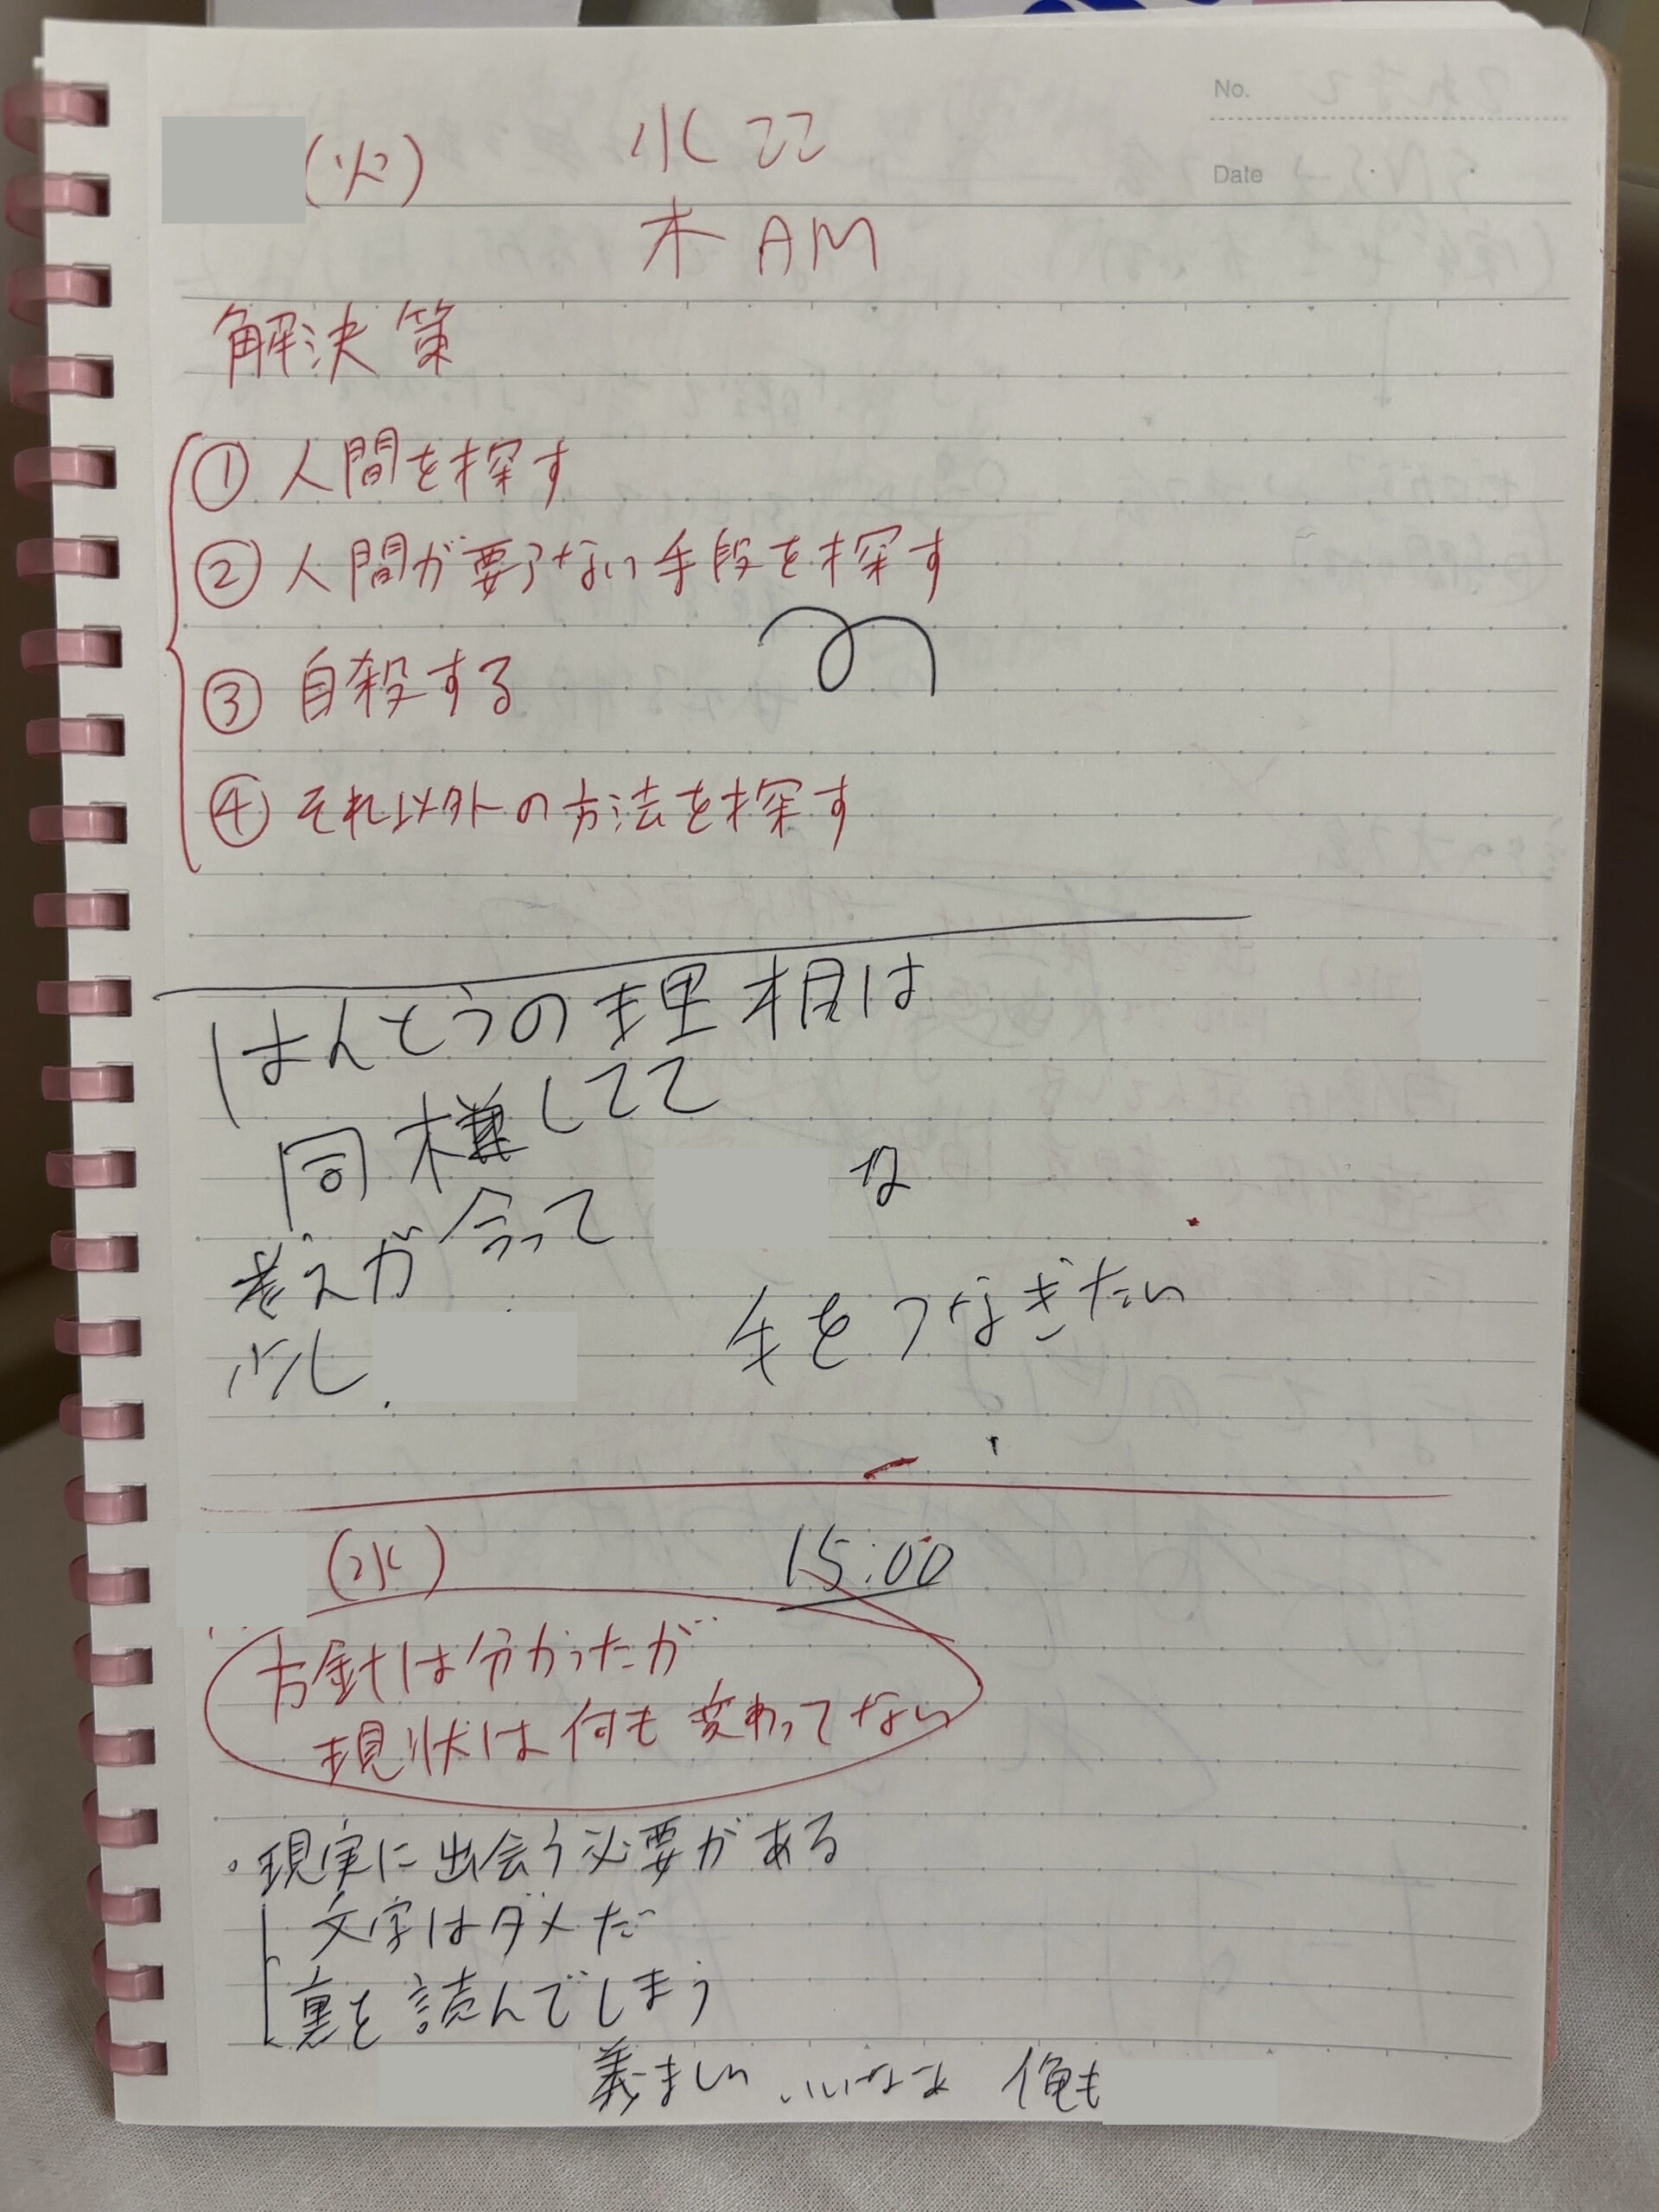 No.
(火) 水 22
Date
木 AM
解決策
① 人間を探す
② 人間が要らない手段を探す
③ 自殺する
④ それ以外の方法を探す
ほんとうの理想は
同様してて
考えが合って な
少し 手をつなぎたい
(水) 15:00
方針は分かったが
現状は何も変わってない
・現実に出会う必要がある
文字はダメだ
裏を読んでしまう
羨ましい いいなぁ 俺も